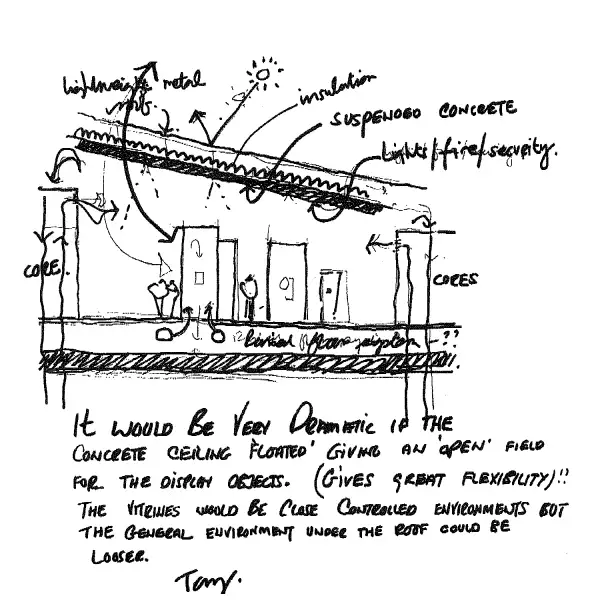 lightweight metal
roof
insulation
SUSPENDED CONCRETE
Lights/fire/security.
CORE.
CORES
floor system - ??
IT WOULD BE VERY DRAMATIC IF THE
CONCRETE CEILING 'FLOATED' GIVING AN 'OPEN' FIELD
FOR THE DISPLAY OBJECTS. (GIVES GREAT FLEXIBILITY)!!
THE VITRINES WOULD BE CLOSE CONTROLLED ENVIRONMENTS BUT
THE GENERAL ENVIRONMENT UNDER THE ROOF COULD BE
LOOSER.
Tony.